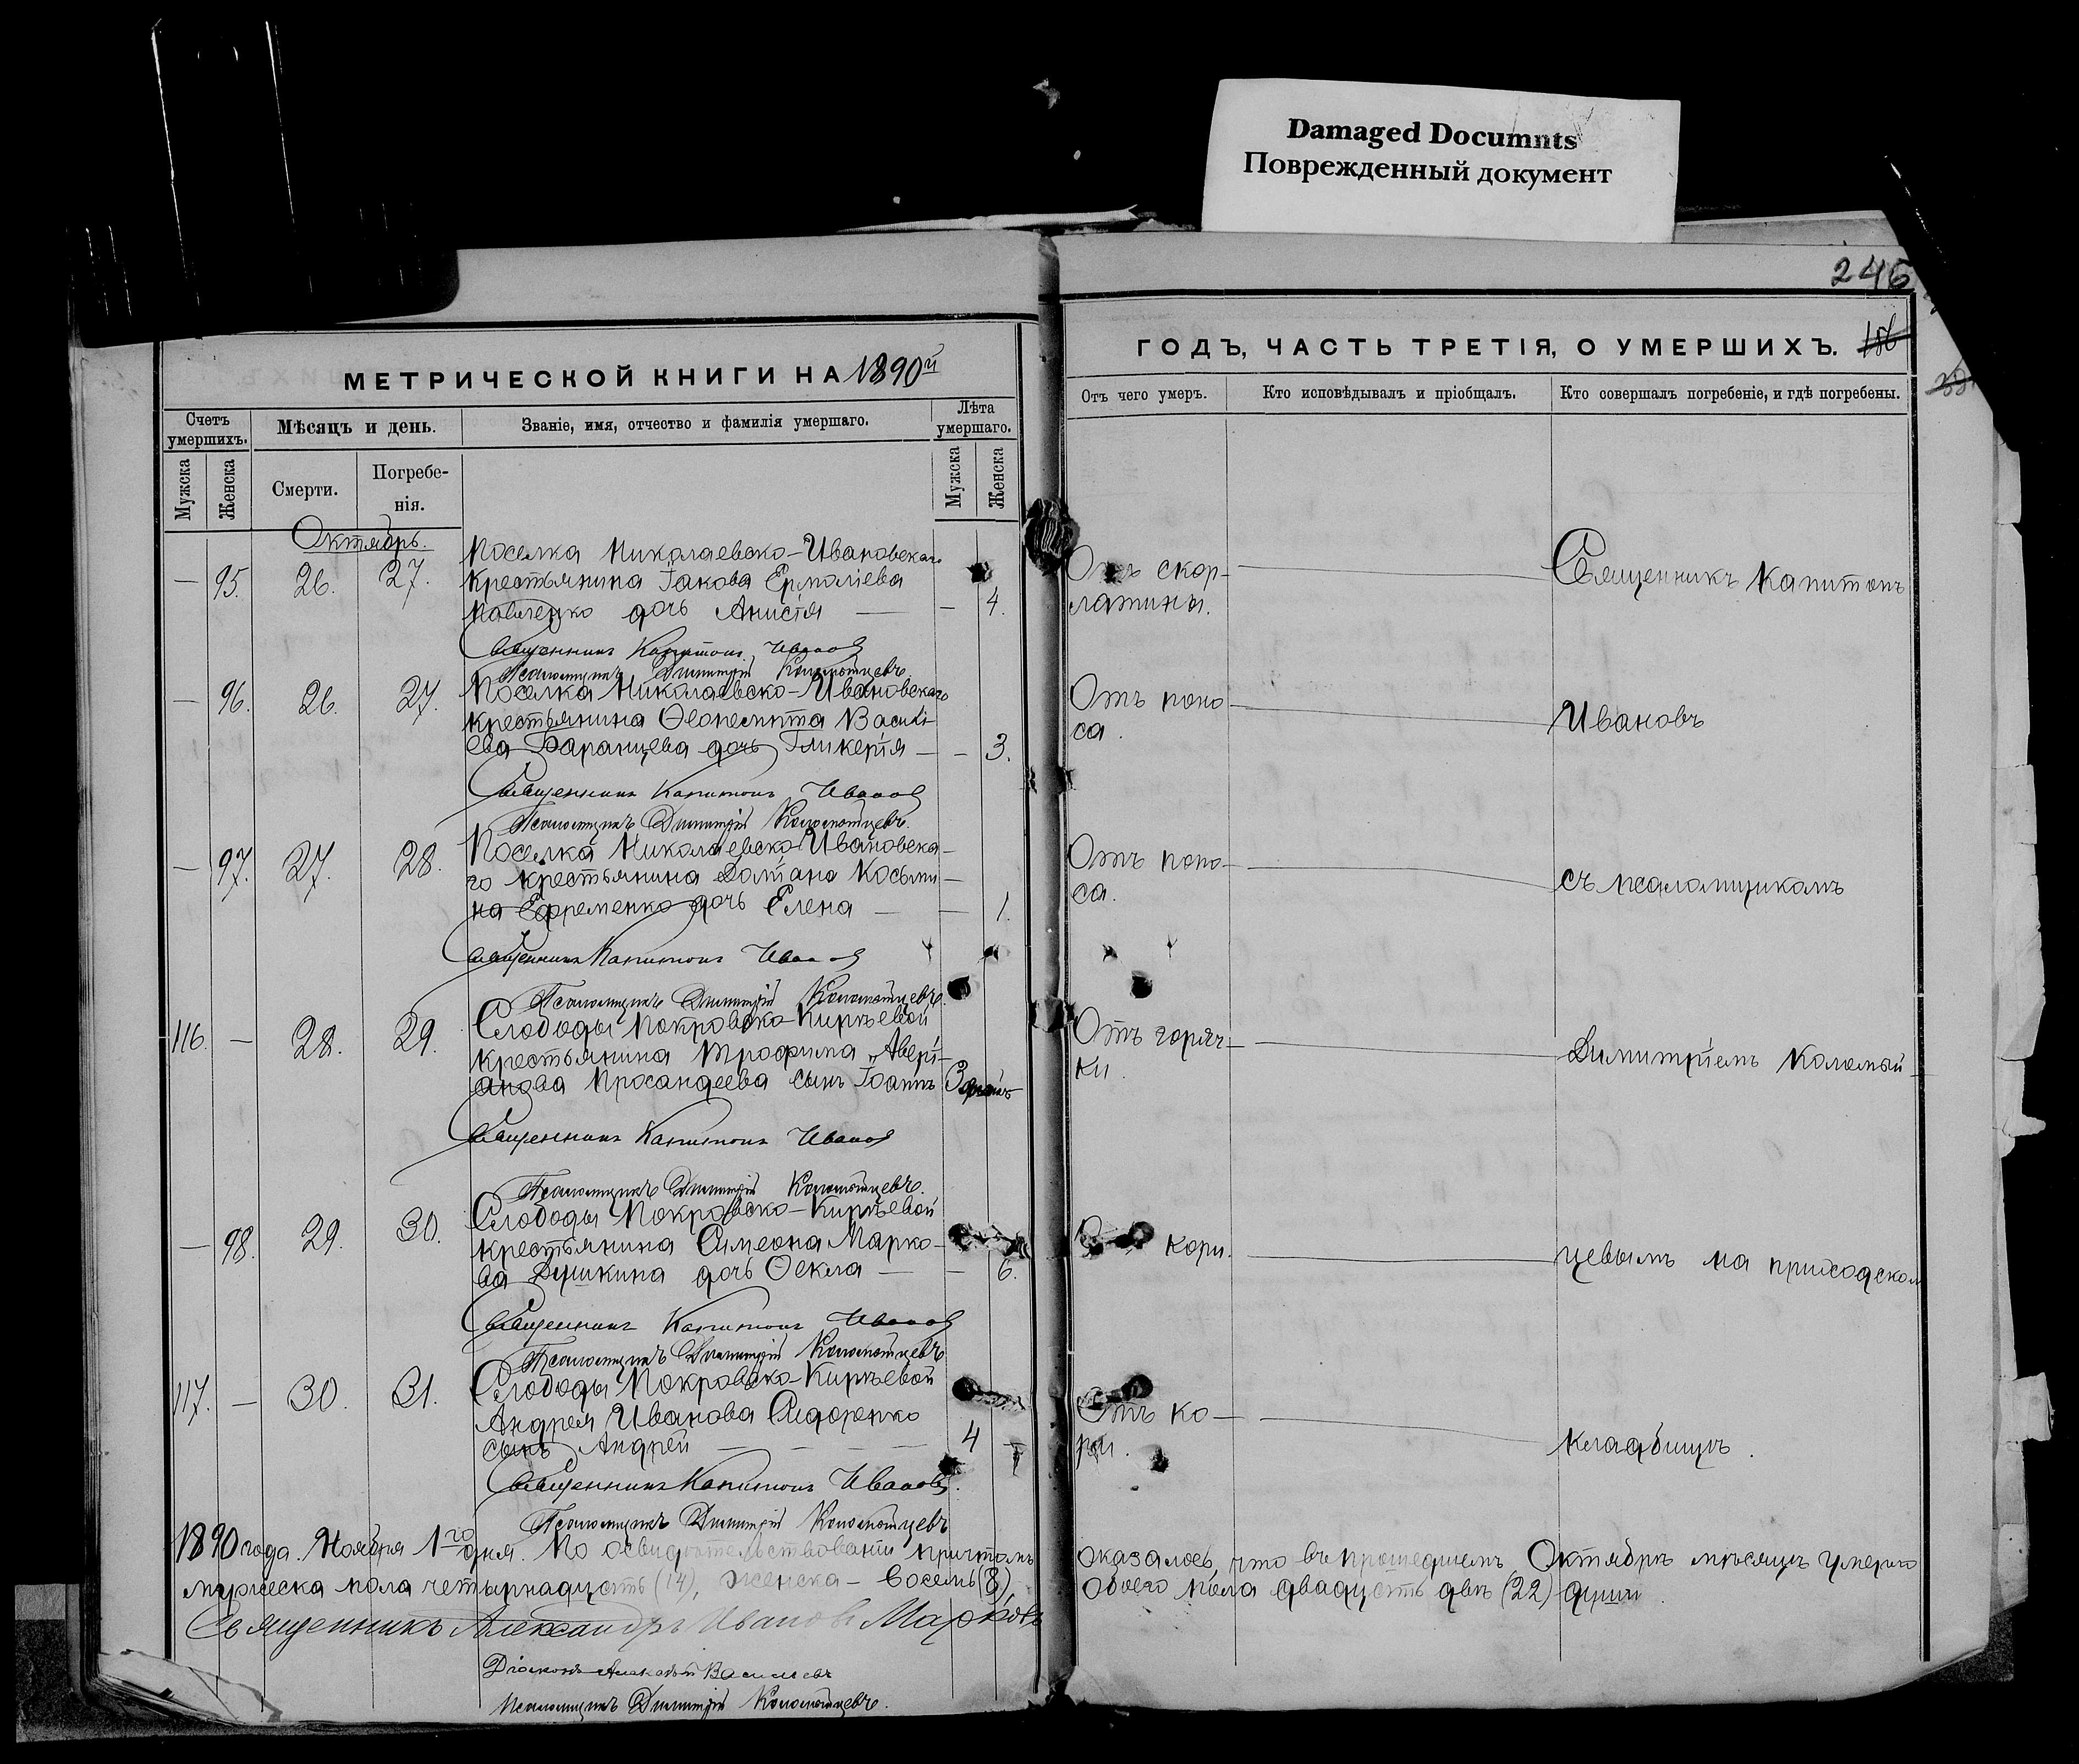 Damaged Documnts
Поврежденный документ
246
МЕТРИЧЕСКОЙ КНИГИ НА 1890й
ГОДЪ, ЧАСТЬ ТРЕТІЯ, О УМЕРШИХЪ. 186
Счетъ умершихъ.
Мѣсяцъ и день.
Званіе, имя, отчество и фамилія умершаго.
Лѣта умершаго.
Отъ чего умеръ.
Кто исповѣдывалъ и пріобщалъ.
Кто совершалъ погребеніе, и гдѣ погребены.
Мужска
Женска
Смерти.
Погребе-
нія.
Мужска
Женска
Октябрь.
Поселка Николаевско-Ивановскаго
— 95. 26. 27. крестьянина Іакова Ермолаева
дочь Анисія — — 4.
Отъ скор-
латины.
Священникъ Капитонъ
Священникъ Капитонъ Ивановъ
Псаломщикъ Димитрій Коломыйцевъ.
— 96. 26. 27. Поселка Николаевско-Ивановскаго
крестьянина Ѳеопемпта Василі-
ева Баранцева дочь Гликерія — — 3.
Отъ поно-
са.
Ивановъ
Священникъ Капитонъ Ивановъ
Псаломщикъ Димитрій Коломыйцевъ.
— 97. 27. 28. Поселка Николаевско-Ивановска-
го крестьянина Даміана Косьми-
на Ефременко дочь Елена — — 1.
Отъ поно-
са.
съ псаломщикомъ
Священникъ Капитонъ Ивановъ
Псаломщикъ Димитрій Коломыйцевъ.
116. — 28. 29. Слободы Покровско-Кирѣевой
крестьянина Трофима Авері-
анова сынъ Іоаннъ 3
Отъ горяч-
ки.
Димитріемъ Коломый-
Священникъ Капитонъ Ивановъ
Псаломщикъ Димитрій Коломыйцевъ.
— 98. 29. 30. Слободы Покровско-Кирѣевой
крестьянина Симеона Марко-
ва Душкина дочь Ѳекла — — 6.
кори.
цевымъ на приходскомъ
Священникъ Капитонъ Ивановъ
Псаломщикъ Димитрій Коломыйцевъ
117. — 30. 31. Слободы Покровско-Кирѣевой
Андрея Иванова Сидоренко
сынъ Андрей — — — — 4 —
Отъ ко-
ри.
кладбищѣ.
Священникъ Капитонъ Ивановъ.
Псаломщикъ Димитрій Коломыйцевъ
1890 года. Ноября 1го дня. По освидѣтельствованіи причтомъ
оказалось, что въ прошедшемъ Октябрѣ мѣсяцѣ умерло
мужеска пола четырнадцать (14), женска — восемь (8),
обоего пола двадцать двѣ (22) души.
Священникъ Александръ Ивановъ Марковъ
Діаконъ Василевъ
Псаломщикъ Димитрій Коломыйцевъ.